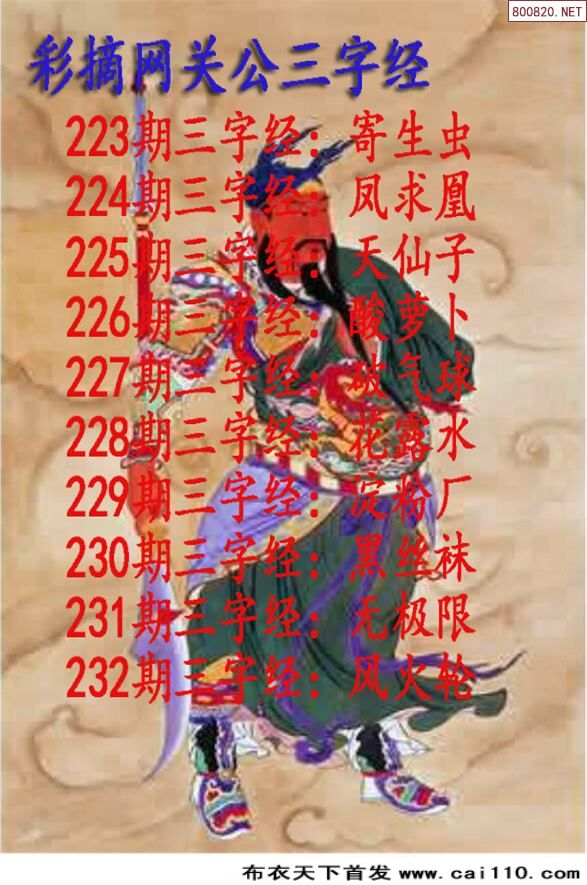 800820.NET
彩摘网关公三字经
223期三字经：寄生虫
224期三字经：凤求凰
225期三字经：天仙子
226期三字经：酸萝卜
227期三字经：破气球
228期三字经：花露水
229期三字经：淀粉厂
230期三字经：黑丝袜
231期三字经：无极限
232期三字经：风火轮
布衣天下首发 www.cai110.com